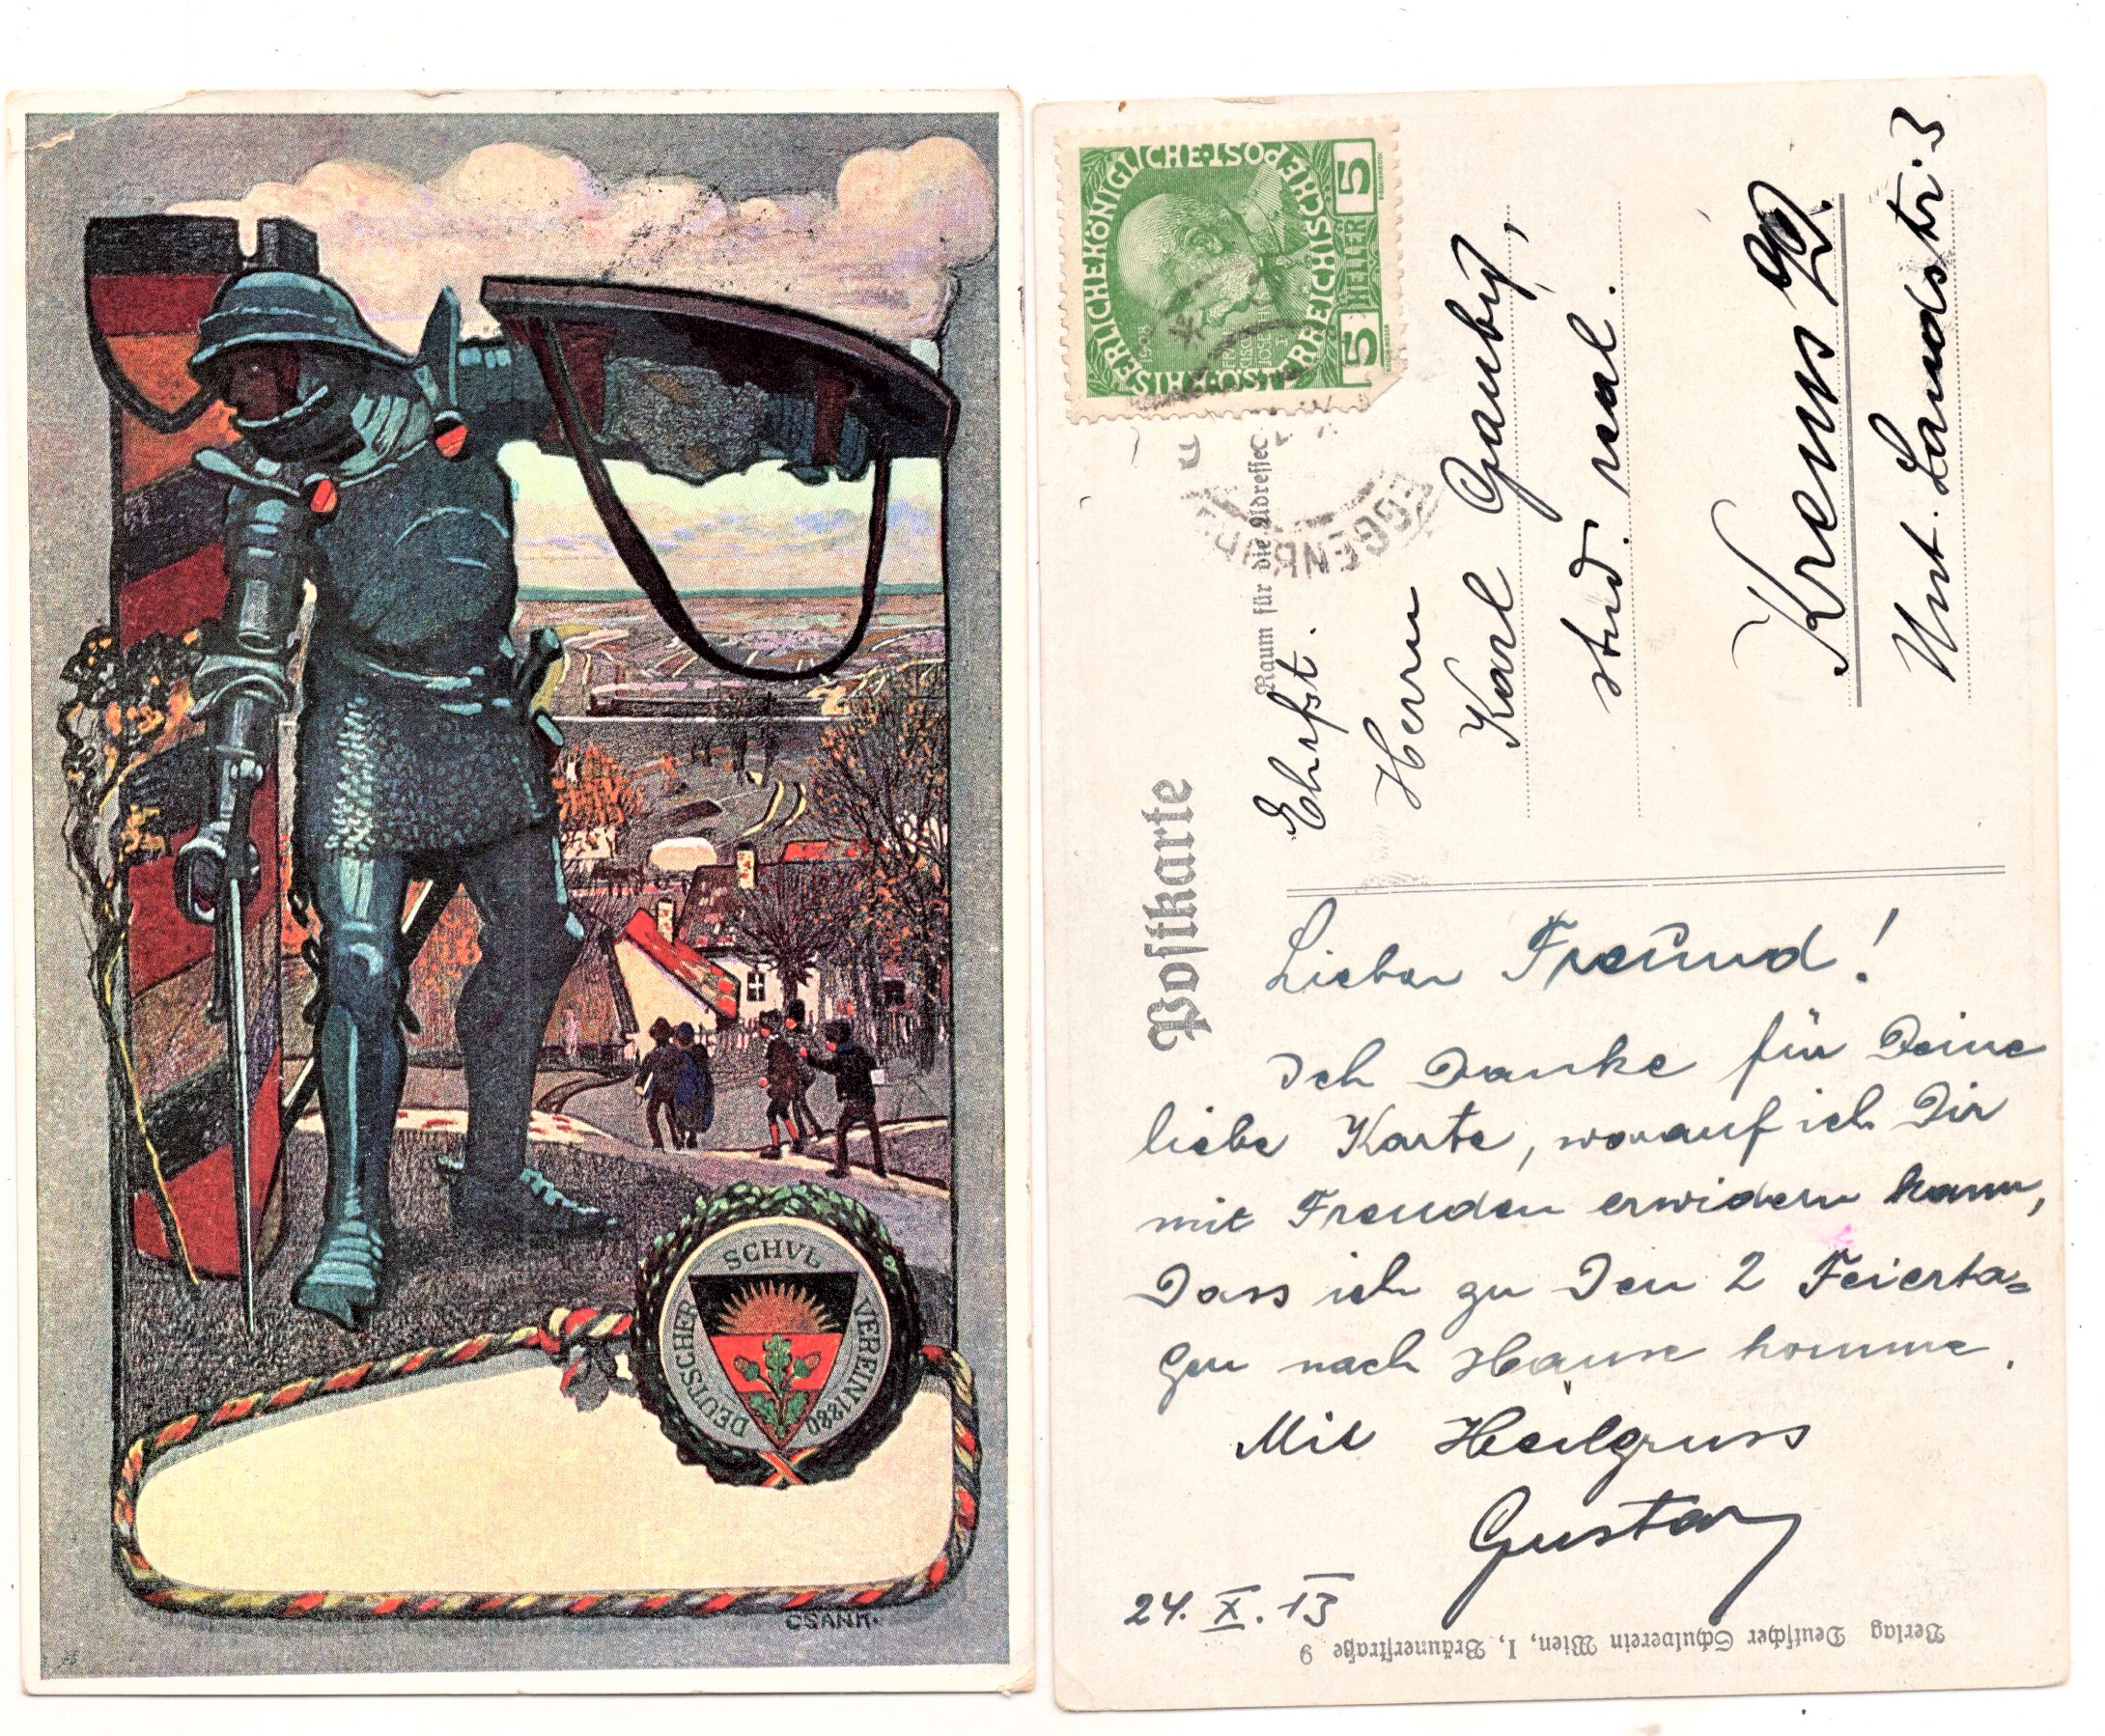 DEUTSCHER SCHVL VEREIN 1880
CSANK.
Postkarte
Raum für die Adresse
KAISERLICHE KÖNIGLICHE ÖSTERREICHISCHE POST
5 HELLER 5
1908
EGGENBURG
Ehrfst.
Herrn
Karl
stud. real.
Krems a/D.
Unt. Landstr. 3
Lieber Freund!
Ich danke für Deine
liebe Karte, worauf ich Dir
mit Freuden erwidern kann,
dass ich zu den 2 Feierta=
gen nach Hause komme.
Mit Heilgruss
Gustav
24. X. 13
Verlag Deutscher Schulverein Wien, I, Bräunerstraße 9